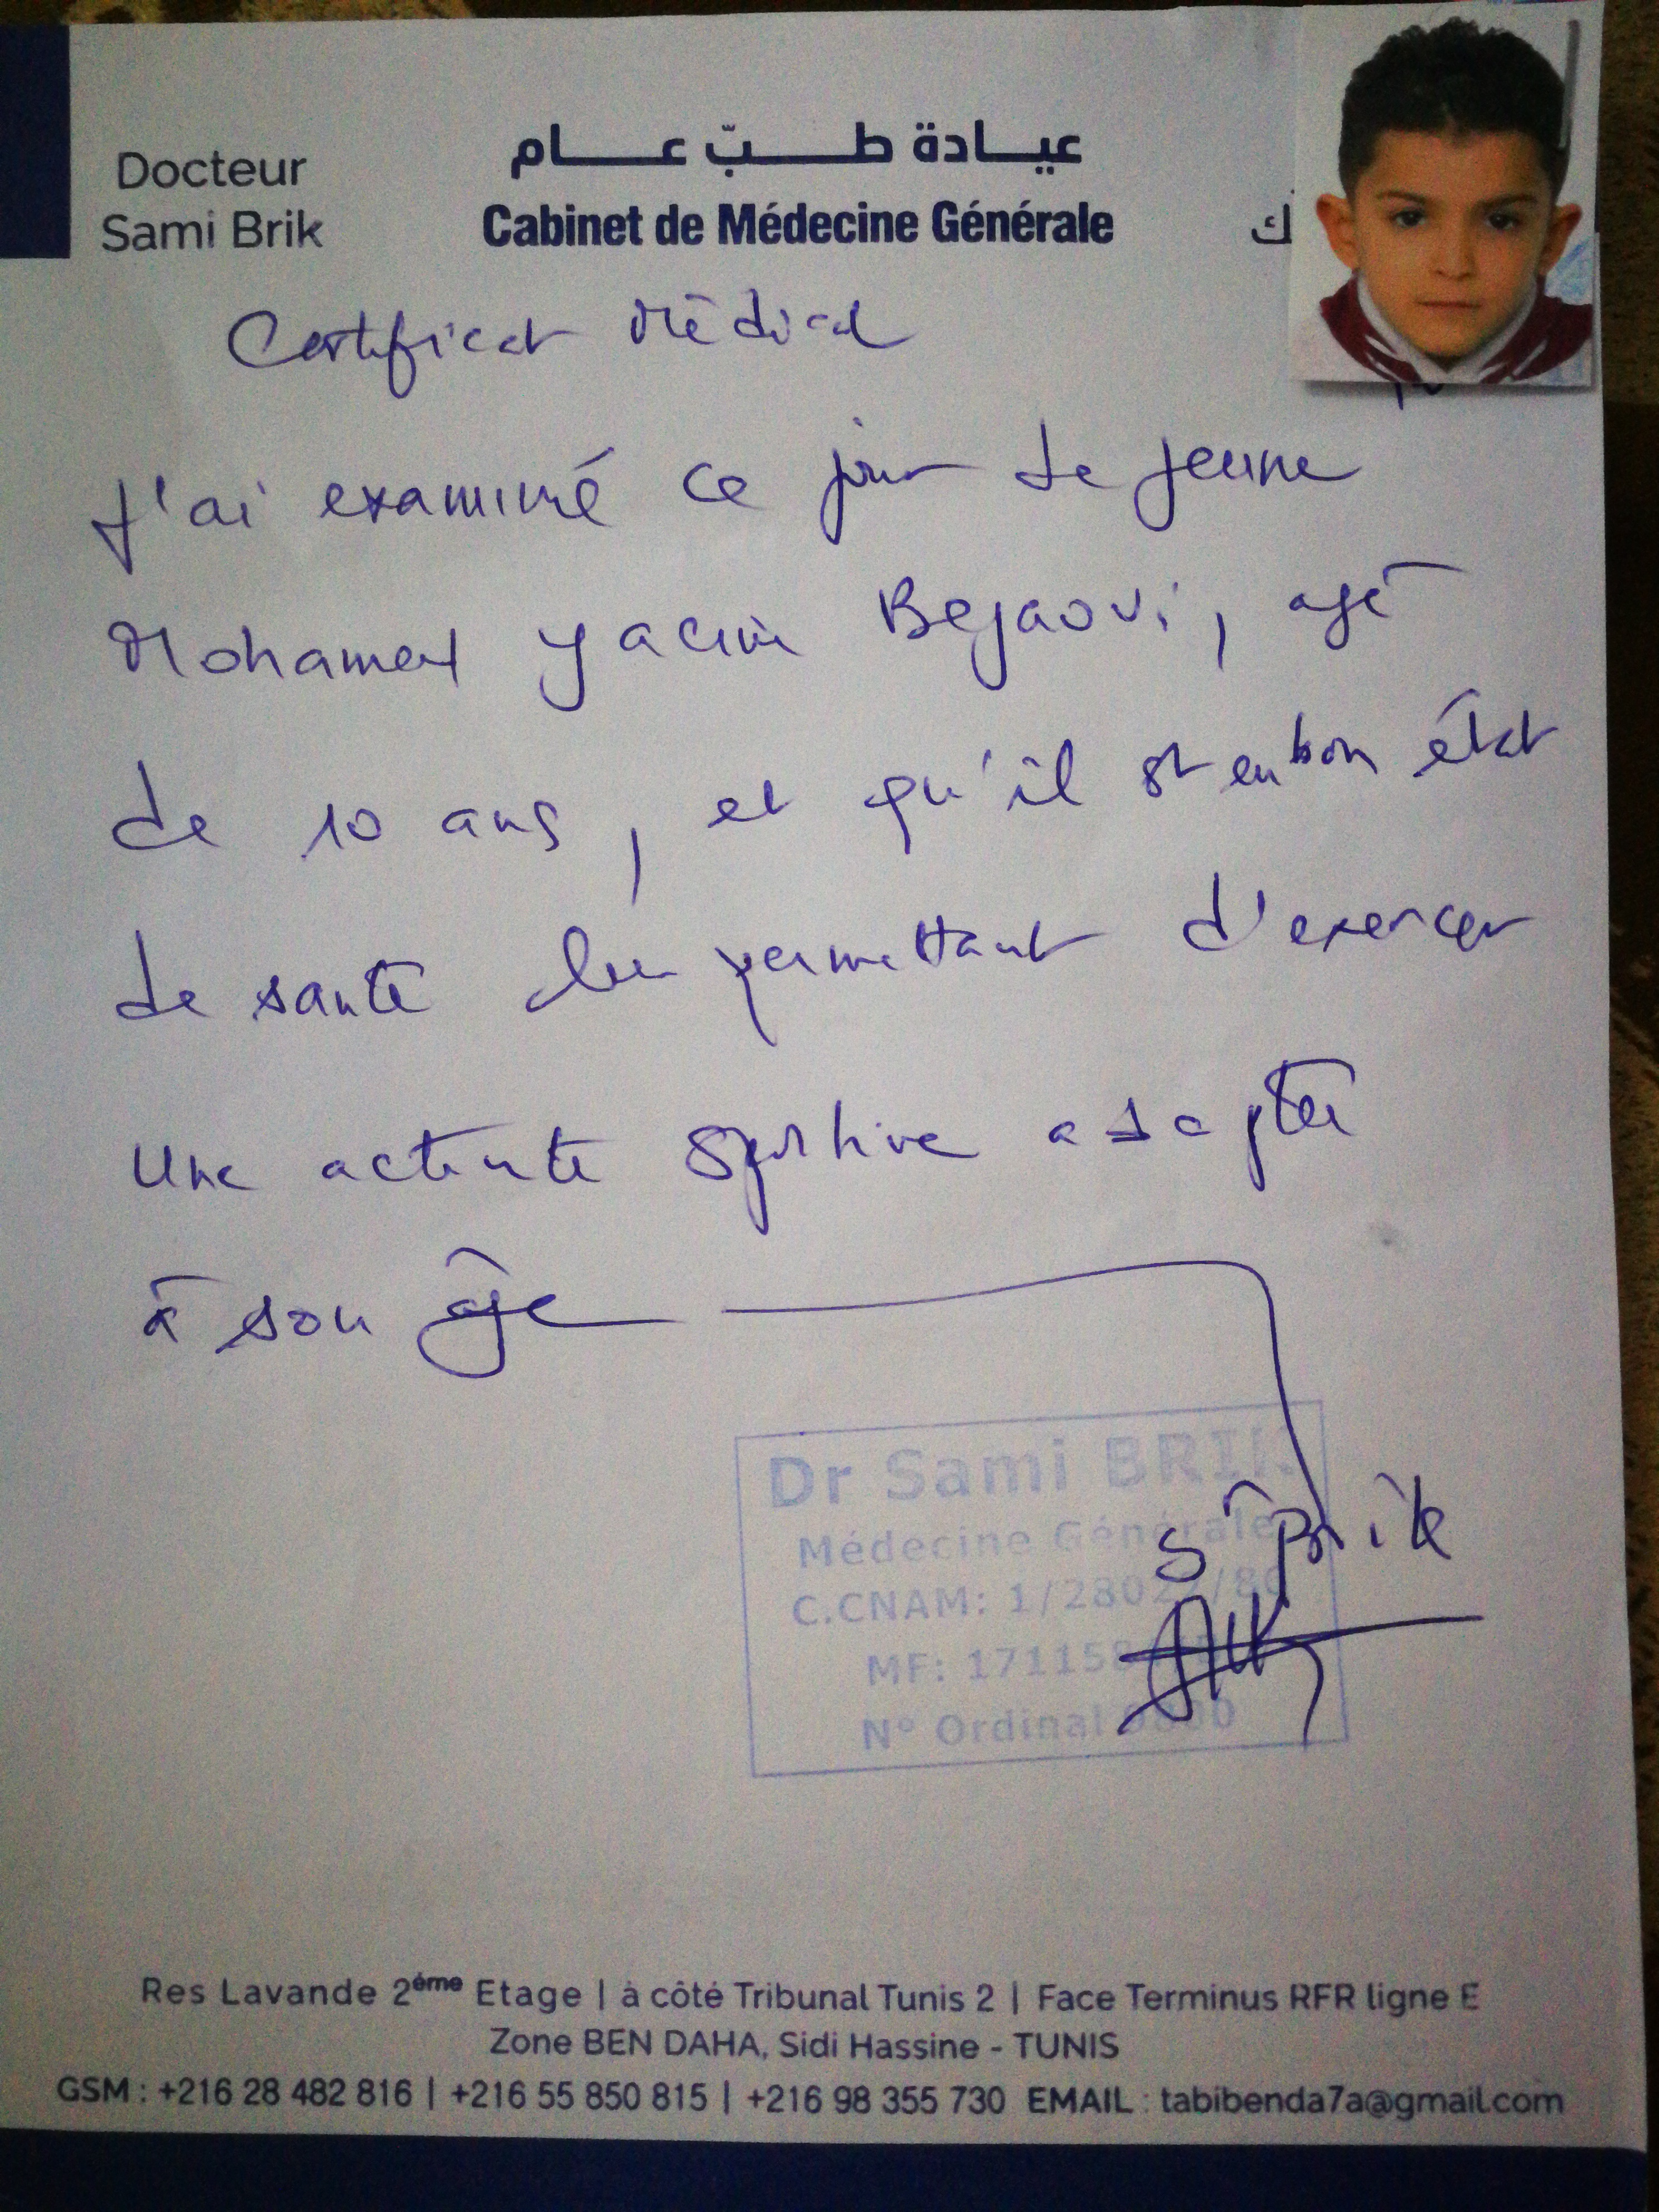 Docteur
Sami Brik
عيادة طبّ عام
Cabinet de Médecine Générale
ك
Certificat Médical
J'ai examiné ce jour le jeune
Mohamed Yacine Bejaoui, agé
de 10 ans, et qu'il est en bon état
de santé lui permettant d'exercer
une activité sportive adaptée
à son âge
Dr Sami BRIK
Médecine Générale
C.CNAM: 1/2802 /80
MF: 171158
N° Ordinal
S. Brik
Res Lavande 2ème Etage | à côté Tribunal Tunis 2 | Face Terminus RFR ligne E
Zone BEN DAHA, Sidi Hassine - TUNIS
GSM : +216 28 482 816 | +216 55 850 815 | +216 98 355 730 EMAIL : tabibenda7a@gmail.com